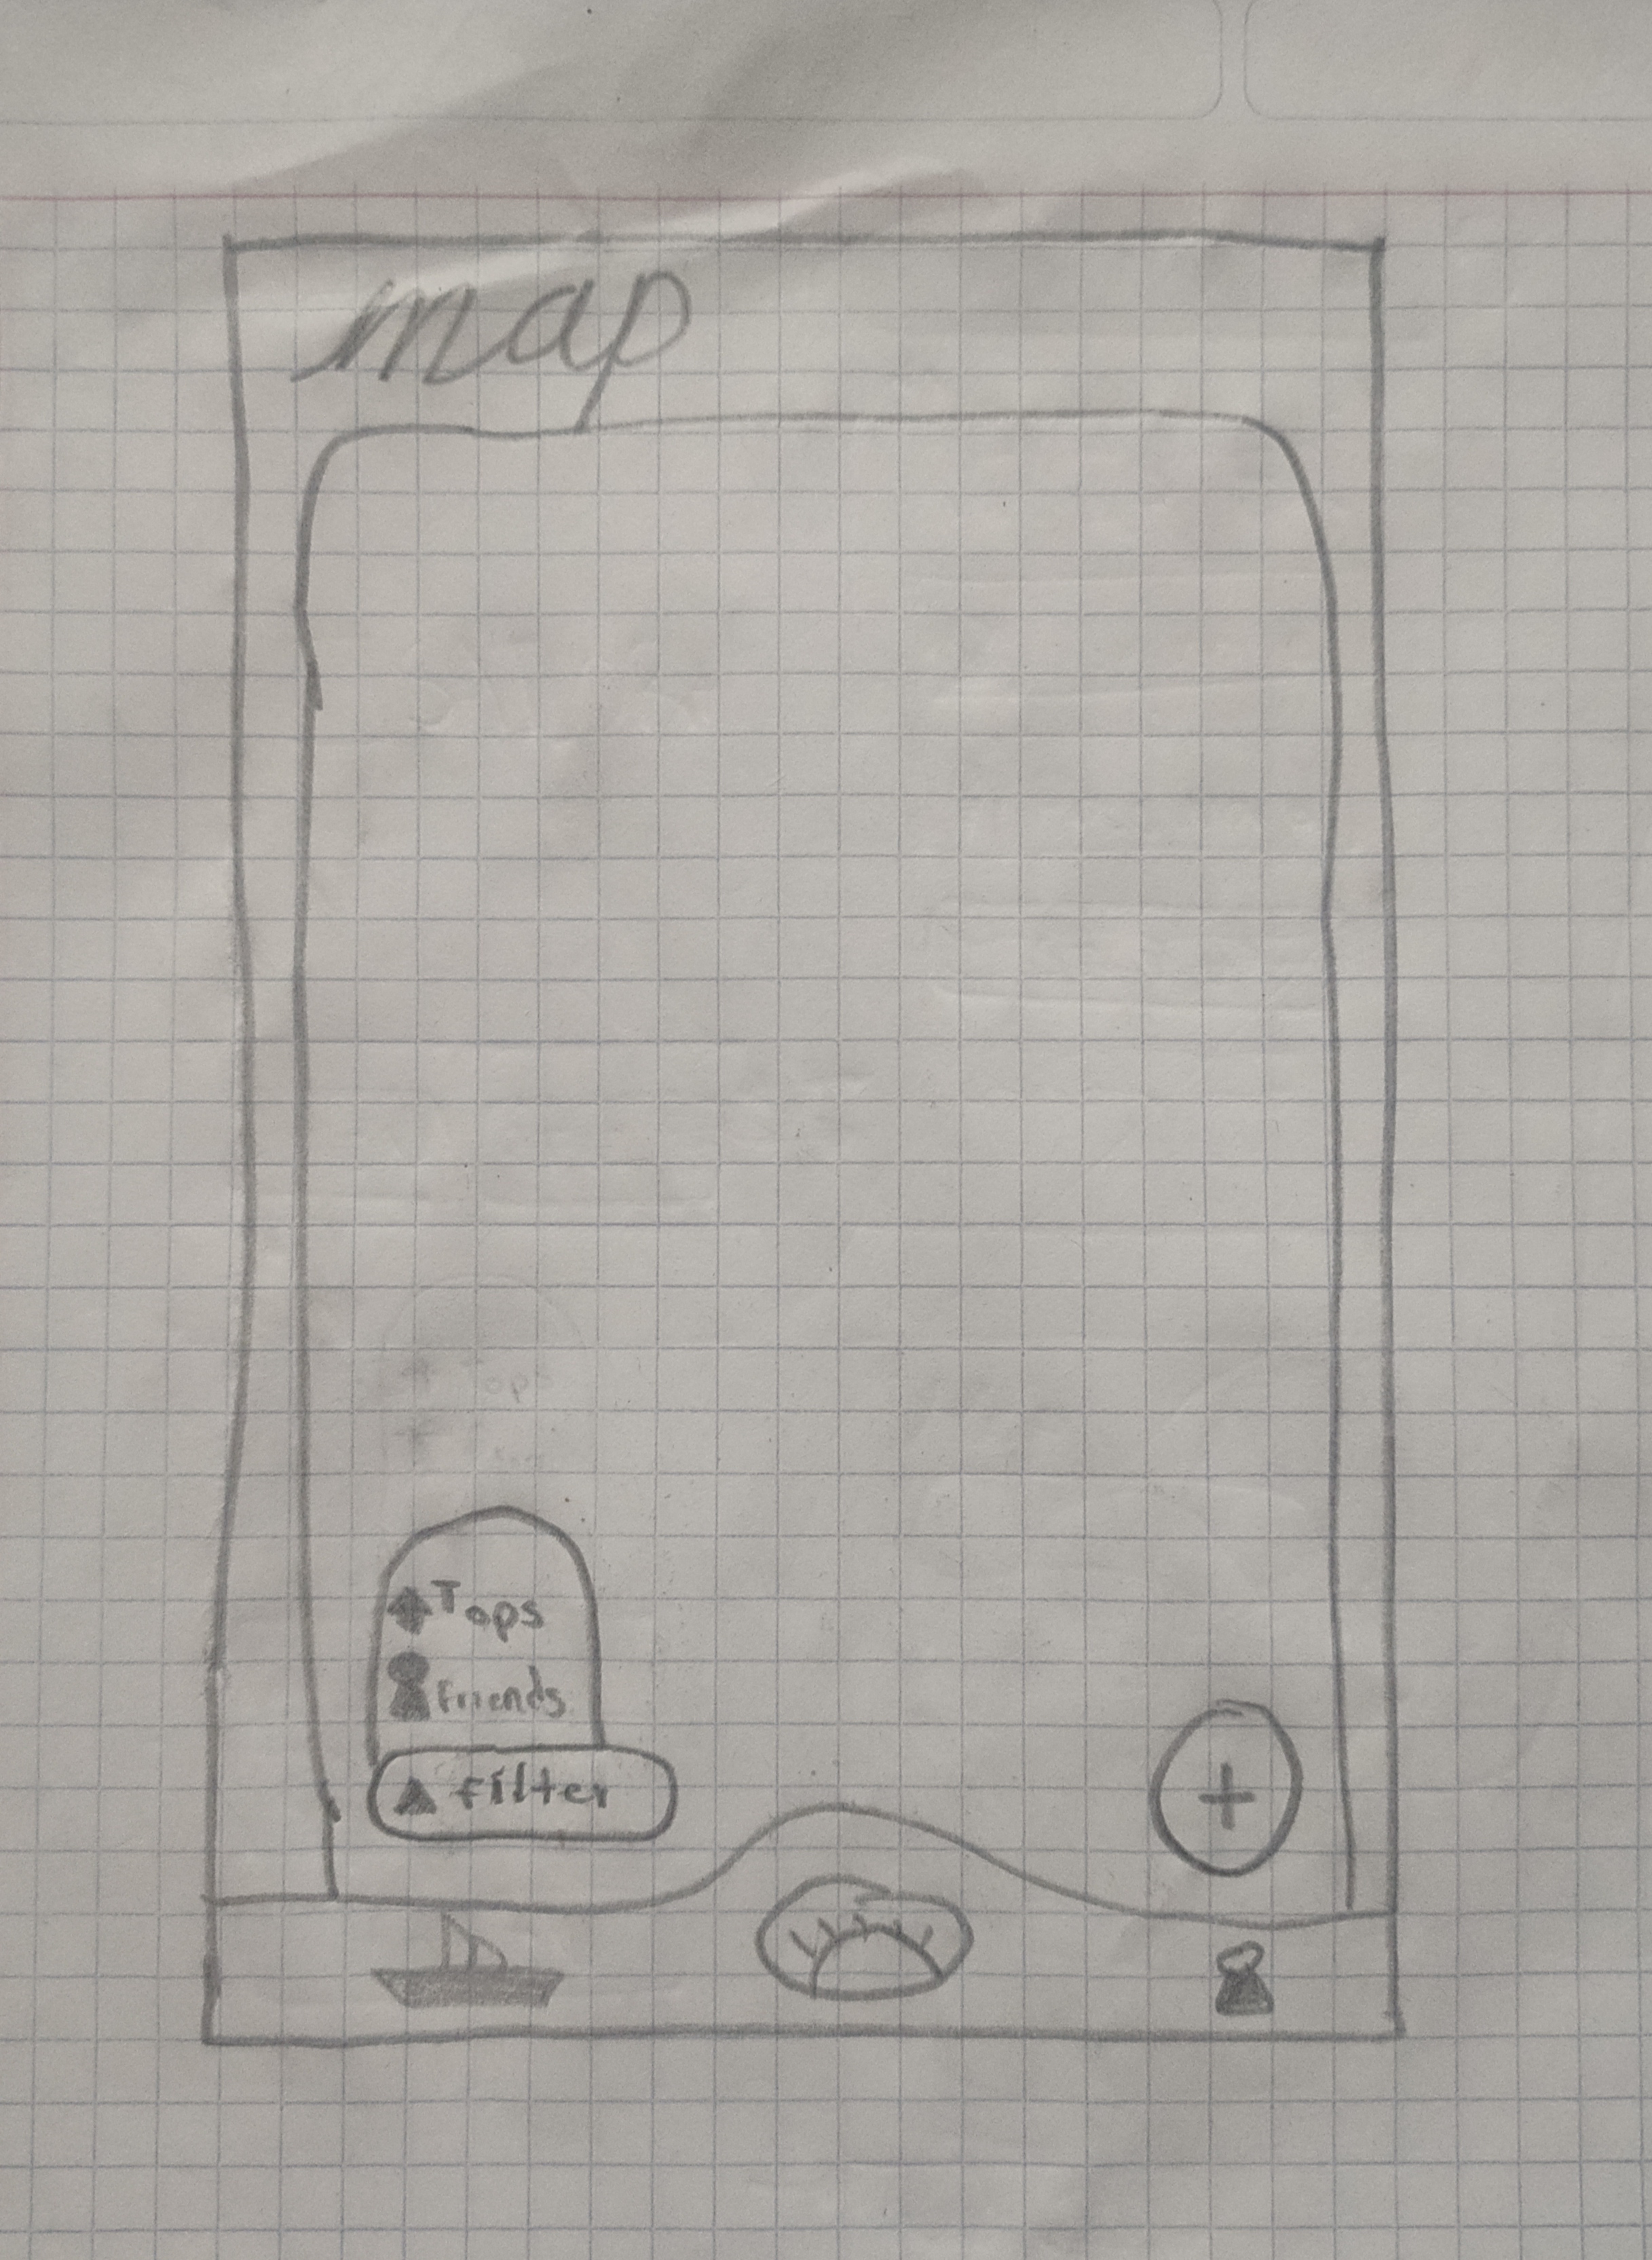 map
Tops
Friends
filter
+